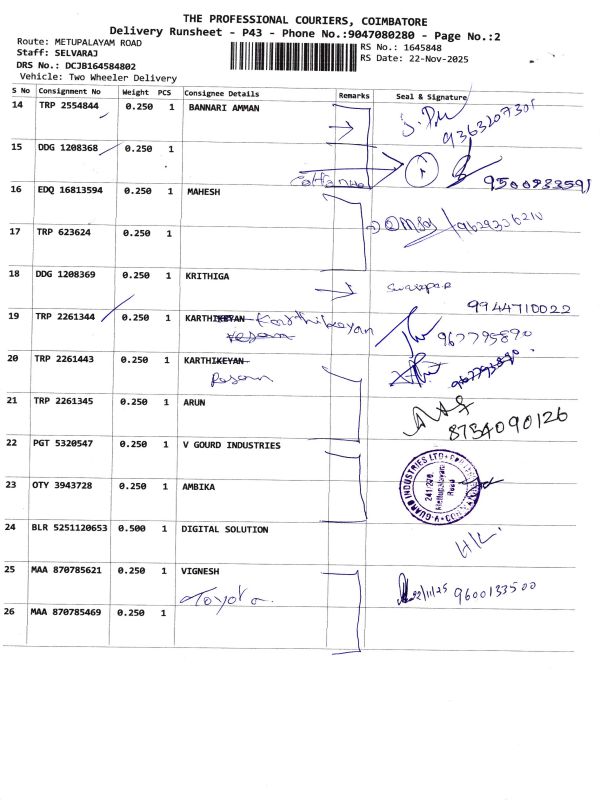 THE PROFESSIONAL COURIERS, COIMBATORE
Delivery Runsheet - P43 - Phone No.:9047080280 - Page No.:2
Route: METUPALAYAM ROAD
Staff: SELVARAJ
RS No.: 1645848
DRS No.: DCJB164584802
RS Date: 22-Nov-2025
Vehicle: Two Wheeler Delivery
S No Consignment No Weight PCS Consignee Details Remarks Seal & Signature
14 TRP 2554844 0.250 1 BANNARI AMMAN
9363207301
15 DDG 1208368 0.250 1
9500933591
16 EDQ 16813594 0.250 1 MAHESH
9629336210
17 TRP 623624 0.250 1
18 DDG 1208369 0.250 1 KRITHIGA
9944710022
19 TRP 2261344 0.250 1 KARTHIKEYAN Karthikeyan
967795890
20 TRP 2261443 0.250 1 KARTHIKEYAN
21 TRP 2261345 0.250 1 ARUN
8754090126
22 PGT 5320547 0.250 1 V GOURD INDUSTRIES
V-GUARD INDUSTRIES LTD
241/270,
Mettupalayam
Road
23 OTY 3943728 0.250 1 AMBIKA
24 BLR 5251120653 0.500 1 DIGITAL SOLUTION
H/L.
25 MAA 870785621 0.250 1 VIGNESH
Toyota
22/11/25 9600133500
26 MAA 870785469 0.250 1